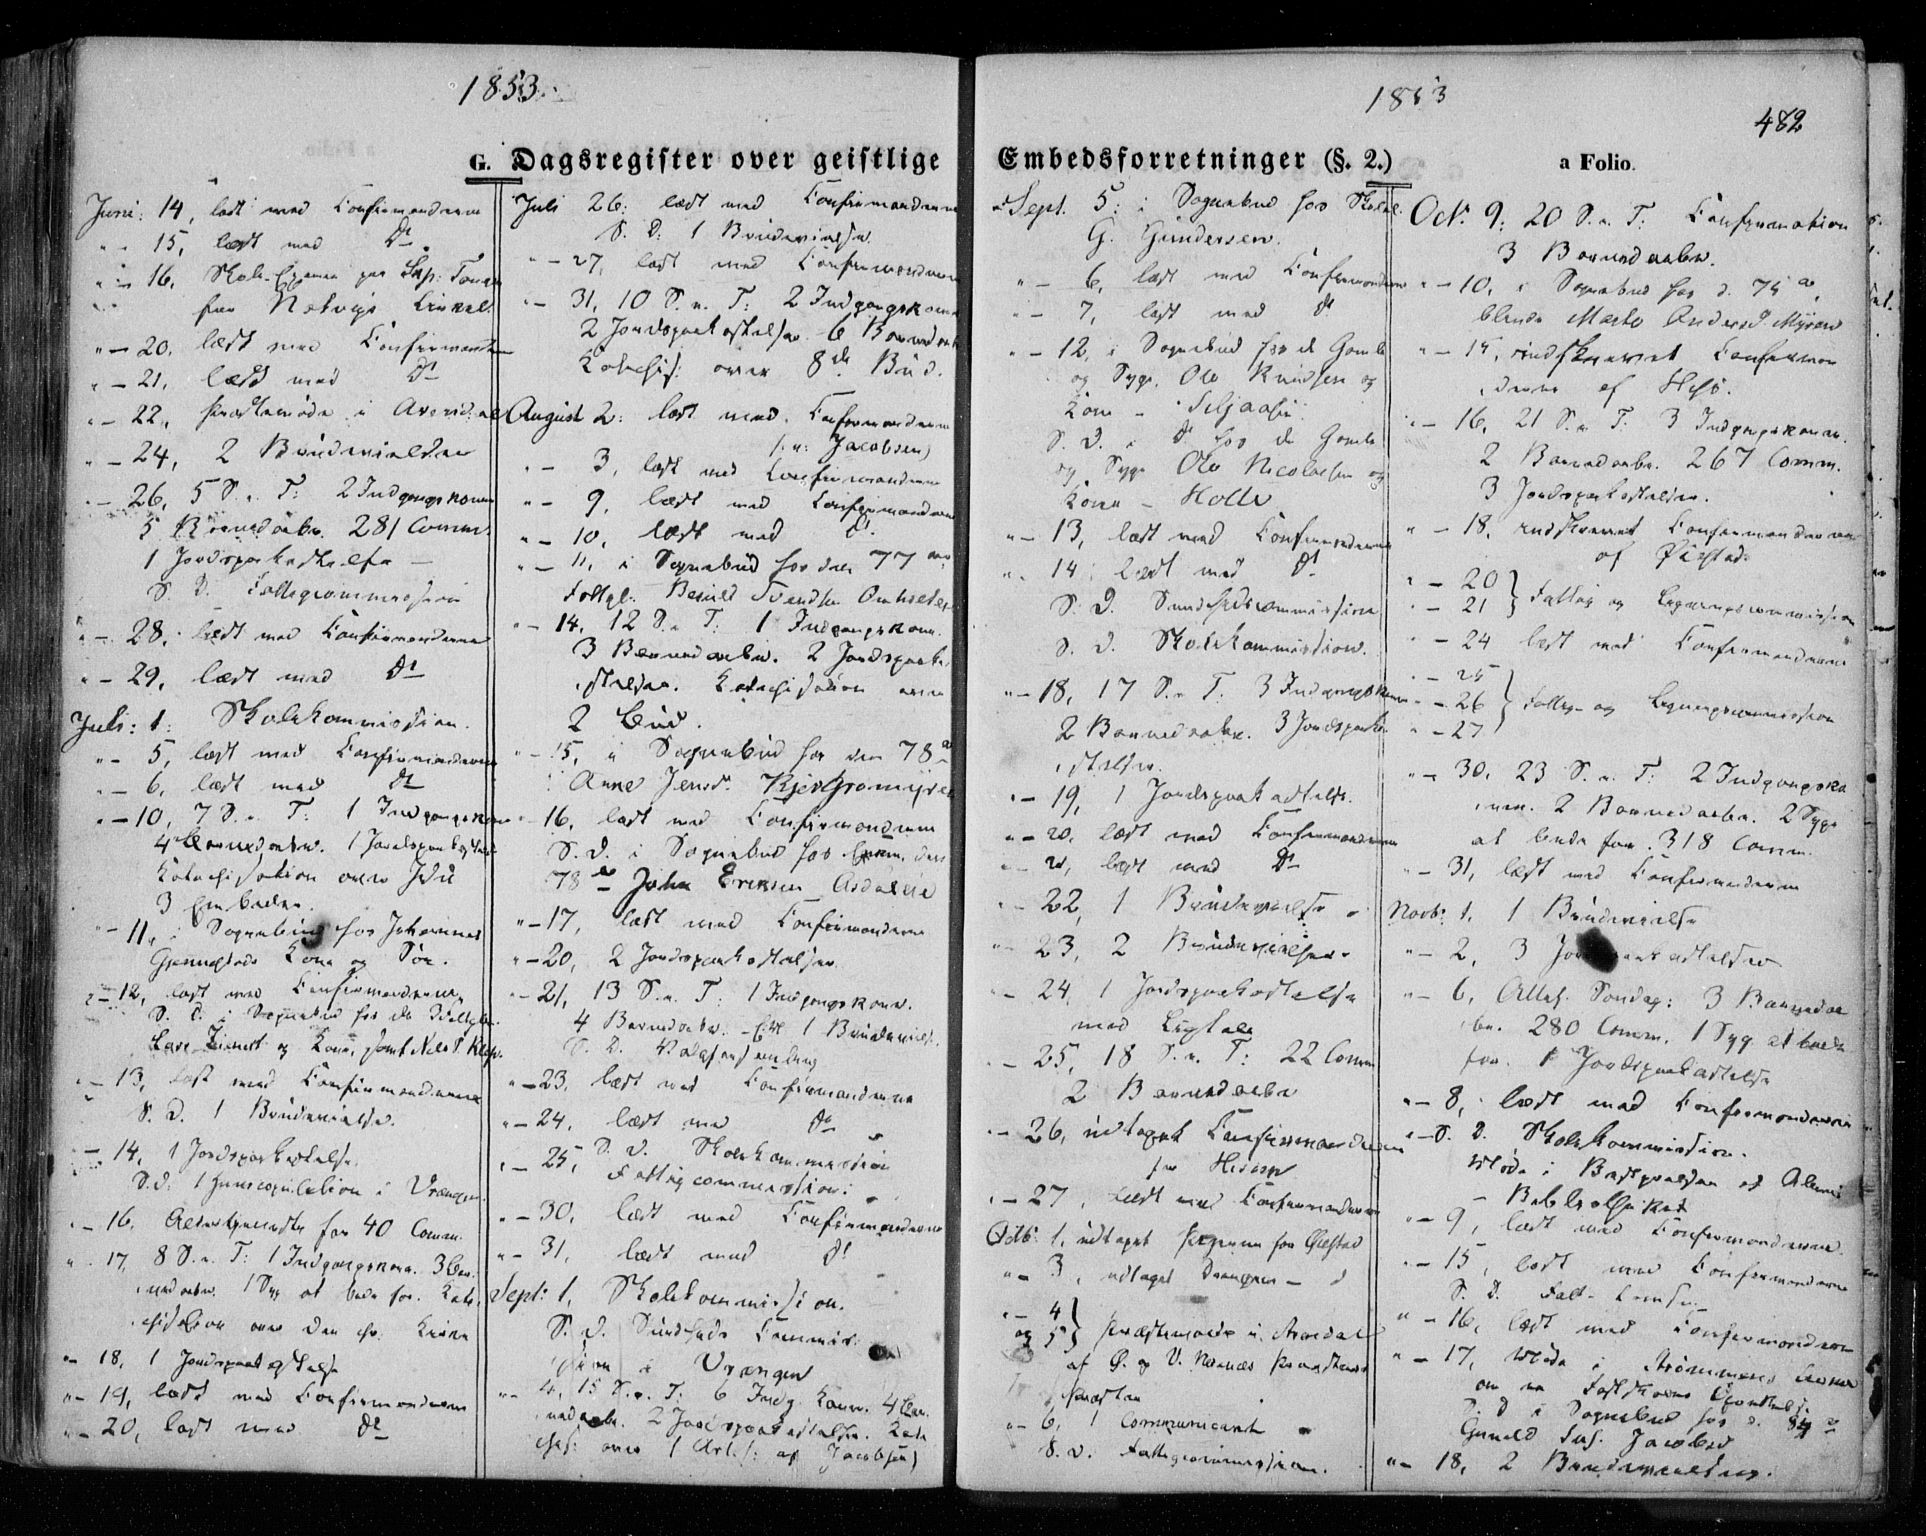 1853
G. Dagsregister over geistlige
Juni: 14, læst med Confirmanderne
" - 15, læst med Do
" - 16, Skole-Examen
for Circel.
" - 20, læst med
" - 21, læst med Do
" - 22, Præstemøde i Arendal
" - 24, 2 Brudevielser
" - 26, 5 S. e. T: 2 Indgangskoner
5 Barnedaabe. 281 Comm.
1 Jordspaakastelse
S. D. Fattigcommission
" - 28, læst med Confirmanderne
" - 29, læst med Do
Juli: 1: Skolekommission.
" - 5, læst med Confirmanderne
" - 6, læst med Do
" - 10, 7 S. e. T: 1 Indgangskone
4 Barnedaabe. 1 Jordspaakastelse
Katechisation over
3
" - 11, i Sognebud hos Johannes
Kone og Søn.
" - 12, læst med Confirmanderne
S. D. i Sognebud hos
og Kone, samt Niels
" - 13, læst med Confirmanderne
S. D. 1 Brudevielse.
" - 14, 1 Jordspaakastelse
S. D. 1 i Vrængen
" - 16, for 40 Comm.
" - 17, 8 S. e. T: 1 Indgangskone. 3 Bar-
nedaabe. 1 Syg at bede for. Kate-
chisation over den
" - 18, 1 Jordspaakastelse
" - 19, læst med Confirmanderne
" - 20, læst med Do
Juli 26: læst med Confirmanderne
S. D: 1 Brudevielse.
" - 27, læst med Confirmanderne
" - 31, 10 S. e. T: 2 Indgangskoner
2 Jordspaakastelser 6 Barnedaabe
Katechis: over 8de Bud.
August 2: læst med Confirmanderne
Jacobsen)
" - 3, læst med Confirmanderne
" - 9, læst med Confirmanderne
" - 10, læst med Do
" - 11, i Sognebud hos den 77 aar.
" - 14, 12 S. e. T: 1 Indgangskone.
3 Barnedaabe. 2 Jordspaaka-
stelser. Katechisation over
2 Bud.
" - 15, i Sognebud hos den 78 a
Anne Jensd.
" - 16, læst med Confirmanderne
S. D. i Sognebud hos den
78 a John Eriksen Asdalene
" - 17, læst med Confirmanderne
" - 20, 2 Jordspaakastelser
" - 21, 13 S. e. T: 1 Indgangskone.
4 Barnedaabe. 1 Brudevielse.
S. D. Valgforsamling
" - 23, læst med Confirmanderne
" - 24, læst med Do
" - 25, S. D. Skolekommission
Fattigcommission
" - 30, læst med Confirmanderne
" - 31, læst med Do
Sept: 1, Skolekommission.
S. D. Sundheds Commis-
sion i Vrængen
" - 4, 15 S. e. T: 6 Indg. Koner. 4 Bar-
nedaabe. 2 Jordspaakastelser. Kate-
ches: over 1 Art. (: af Jacobsen)
1853
482
Embedsforretninger (§. 2.)
a Folio.
Sept. 5: i Sognebud hos Skolel.
G. Gundersen.
" - 6, læst med Confirmanderne
" - 7, læst med Do
" - 12, i Sognebud hos de Gamle
og Syge, Ole Knudsen og
Kone -
S. D. i Do hos de Gamle
og Syge Ole Nicolaisen og
Kone - Holte
" - 13, læst med Confirmanderne
" - 14, læst med Do
S. D. Sundhedscommission
S. D. Skolekommission.
" - 18, 17 S. e. T. 3 Indgangskoner
2 Barnedaabe. 3 Jordspaaka-
stelser.
" - 19, 1 Jordspaakastelse.
" - 20, læst med Confirmanderne
" - 21, læst med Do
" - 22, 1 Brudevielse
" - 23, 2 Brudevielser.
" - 24, 1 Jordspaakastelse
med Ligtale
" - 25, 18 S. e. T: 22 Comm
2 Barnedaabe
" - 26, udtaget Confirmanderne
for
" - 27, læst med Confirmanderne
Octb. 1, udtaget Pigerne for Øiestad
" - 3, udtaget Drengene - Do
" - 4 }
og 5 } Præstemøde i Arendal
af Ø. og V. Nedenæs
Præster
" - 6, 1 Communicant
S. D. Fattigcommission.
Oct. 9: 20 S. e. T: Confirmation
3 Barnedaabe.
" - 10, i Sognebud hos d. 75 a.
blinde Marte Andersd Myren
" - 15, indskrevet Confirman-
derne af Hisø.
" - 16, 21 S. e. T: 3 Indgangskoner.
2 Barnedaabe. 267 Comm.
3 Jordspaakastelser.
" - 18, indskrevet Confirmanderne
af Øiestad.
" - 20 }
" - 21 } Fattig og Ligningscommission
" - 24 læst med Confirmanderne
" - 25 }
" - 26 } Fattig- og Ligningscommission
" - 27 }
" - 30, 23 S. e. T: 2 Indgangsko-
ner. 2 Barnedaabe. 2 Syge
at bede for. 318 Comm.
" - 31, læst med Confirmanderne
Novb: 1, 1 Brudevielse
" - 2, 3 Jordspaakastelser
" - 6, Alleh. Søndag: 3 Barnedaa-
be. 280 Comm. 1 Syg at bede
for. 1 Jordspaakastelse
" - 8, læst med Confirmanderne
" - S. D. Skolekommission.
Møde i Bestyrelsen af
- Bibliotheket
" - 9, læst med Confirmanderne.
" - 15, læst med Confirmanderne
S. D.
" - 16, læst med Confirmanderne
" - 17, Møde i
om en
S. D. i Sognebud hos d. 84 a
Jacobsd
" - 18, 2 Brudevielser.